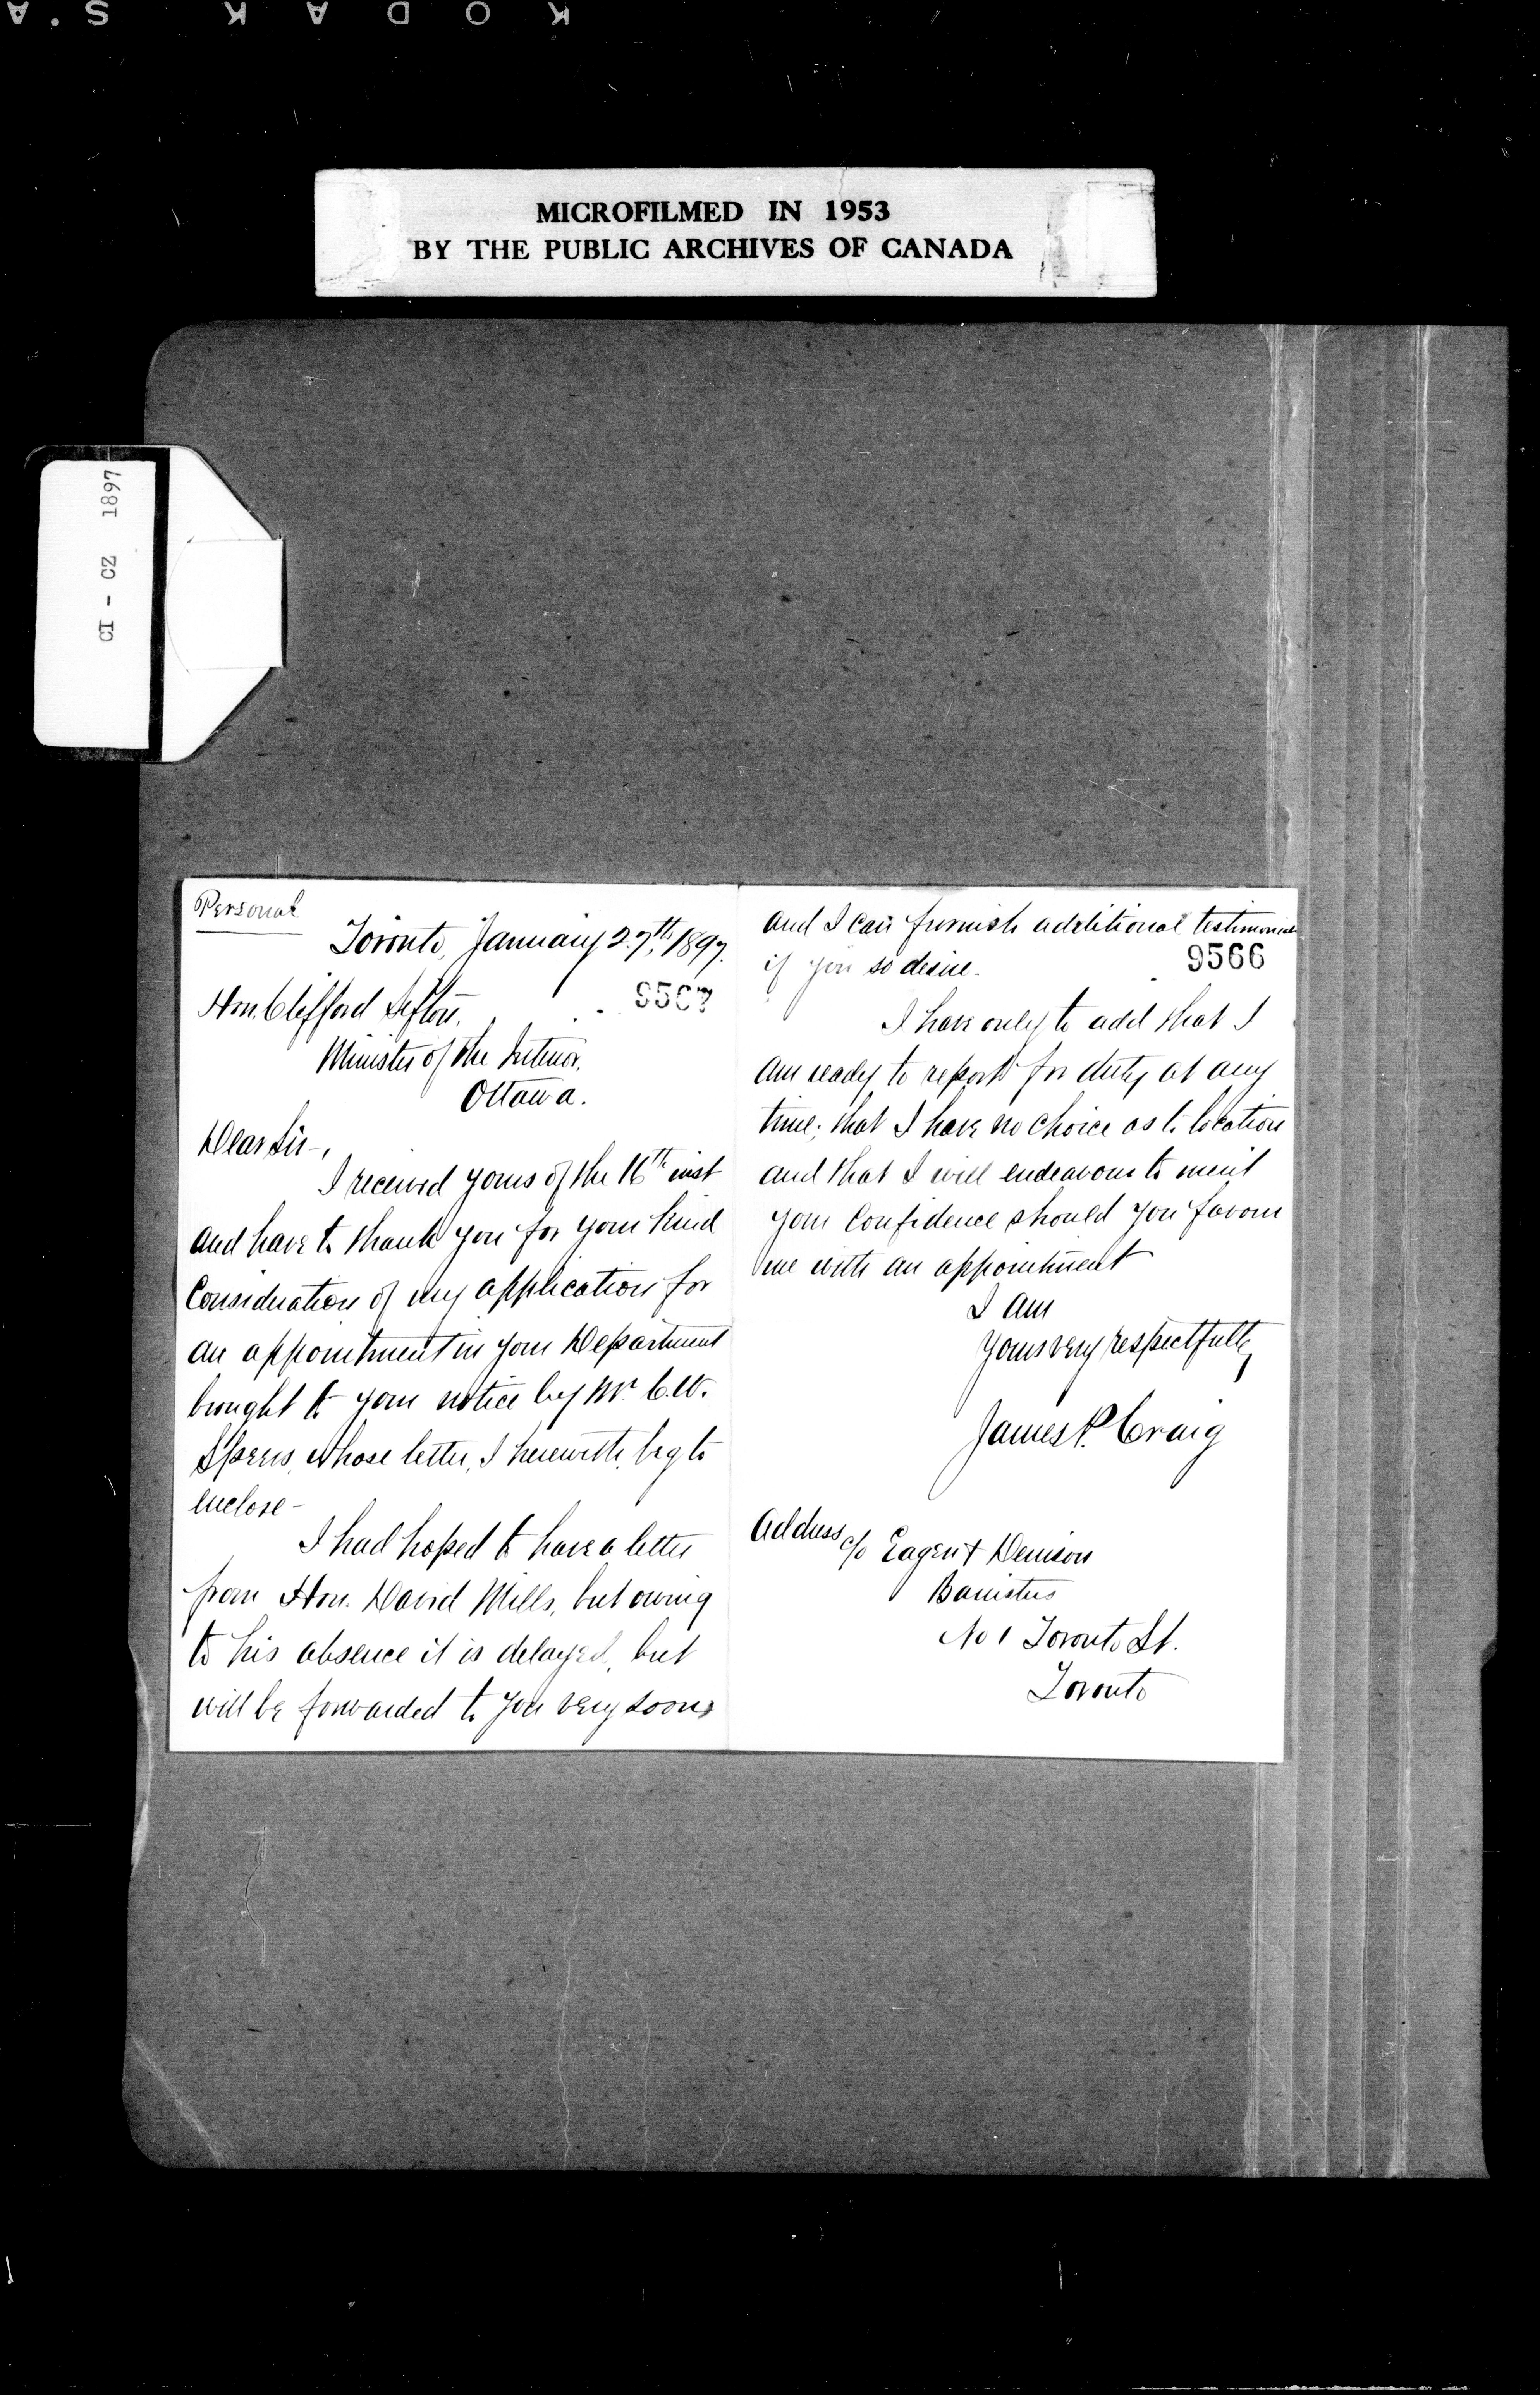 KODAK S.A
MICROFILMED IN 1953
BY THE PUBLIC ARCHIVES OF CANADA
CI - CZ 1897
Personal
Toronto, January 27th, 1897.
9567
Hon. Clifford Sifton,
Minister of the Interior,
Ottawa.
Dear Sir-,
I received yours of the 16th inst
and have to thank you for your kind
Consideration of my application for
an appointment in your Department
brought to your notice by Mr. C.W.
Speers, whose letter, I herewith, beg to
enclose-
I had hoped to have a letter
from Hon. David Mills, but owing
to his absence it is delayed, but
will be forwarded to you very soon,
and I can furnish additional testimonials
if you so desire.
9566
I have only to add that I
am ready to report for duty at any
time; that I have no choice as to location
and that I will endeavour to merit
your Confidence should you favour
me with an appointment
I am
Yours very respectfully,
James P. Craig
Address c/o Eagen & Denison
Barristers
No 1 Toronto St.
Toronto